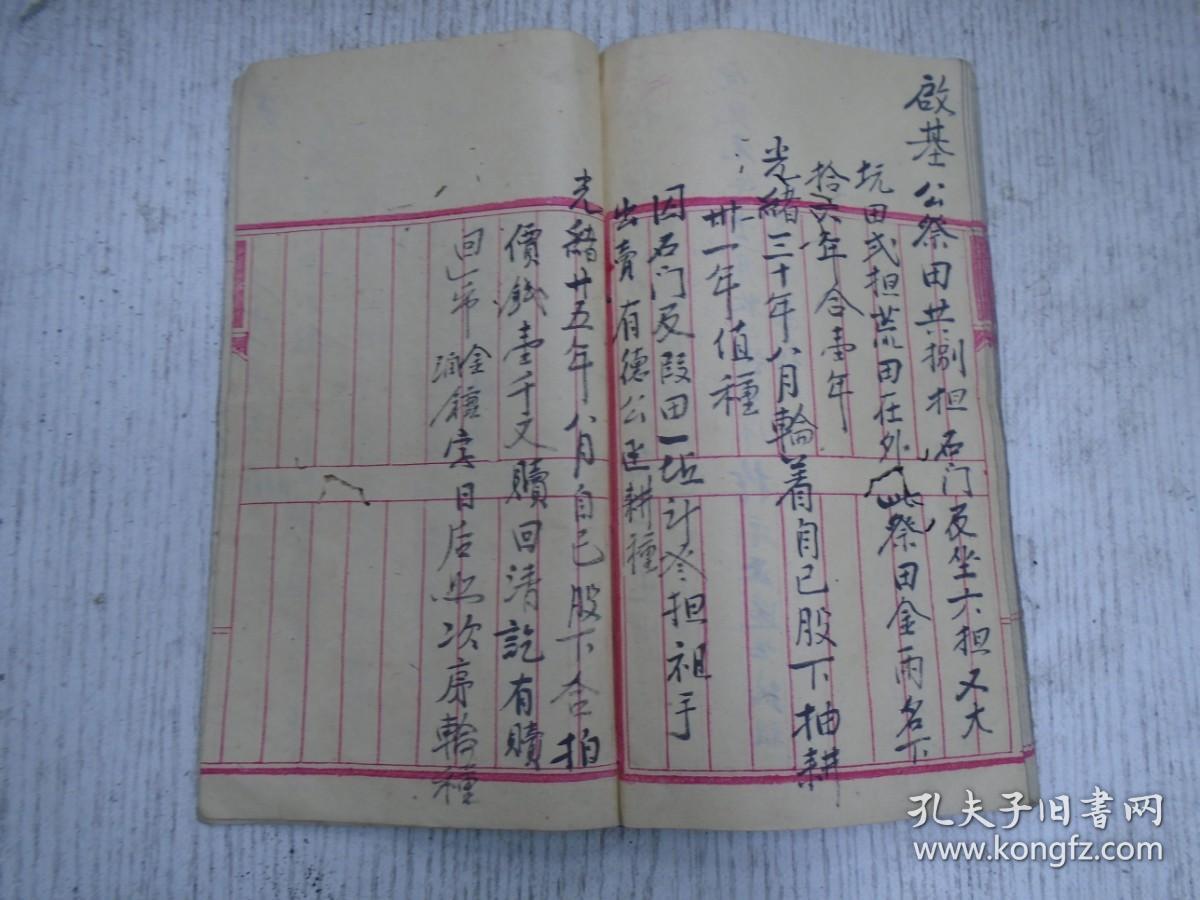 啟基公祭田共捌担石门反坐六担又大
坑田弍担荒田在外此祭田金両名下
拾六年合壹年
光緒三十年八月輪着自己股下抽耕
卅一年值種
因石门反段田一坵計叄担祖手
出賣有德公匡耕種
光緒廿五年八月自己股下合拍
價銭壹千文贖回清訖有贖
回 金鐘 潤 字日后照次序輪種
孔夫子旧书网
www.kongfz.com